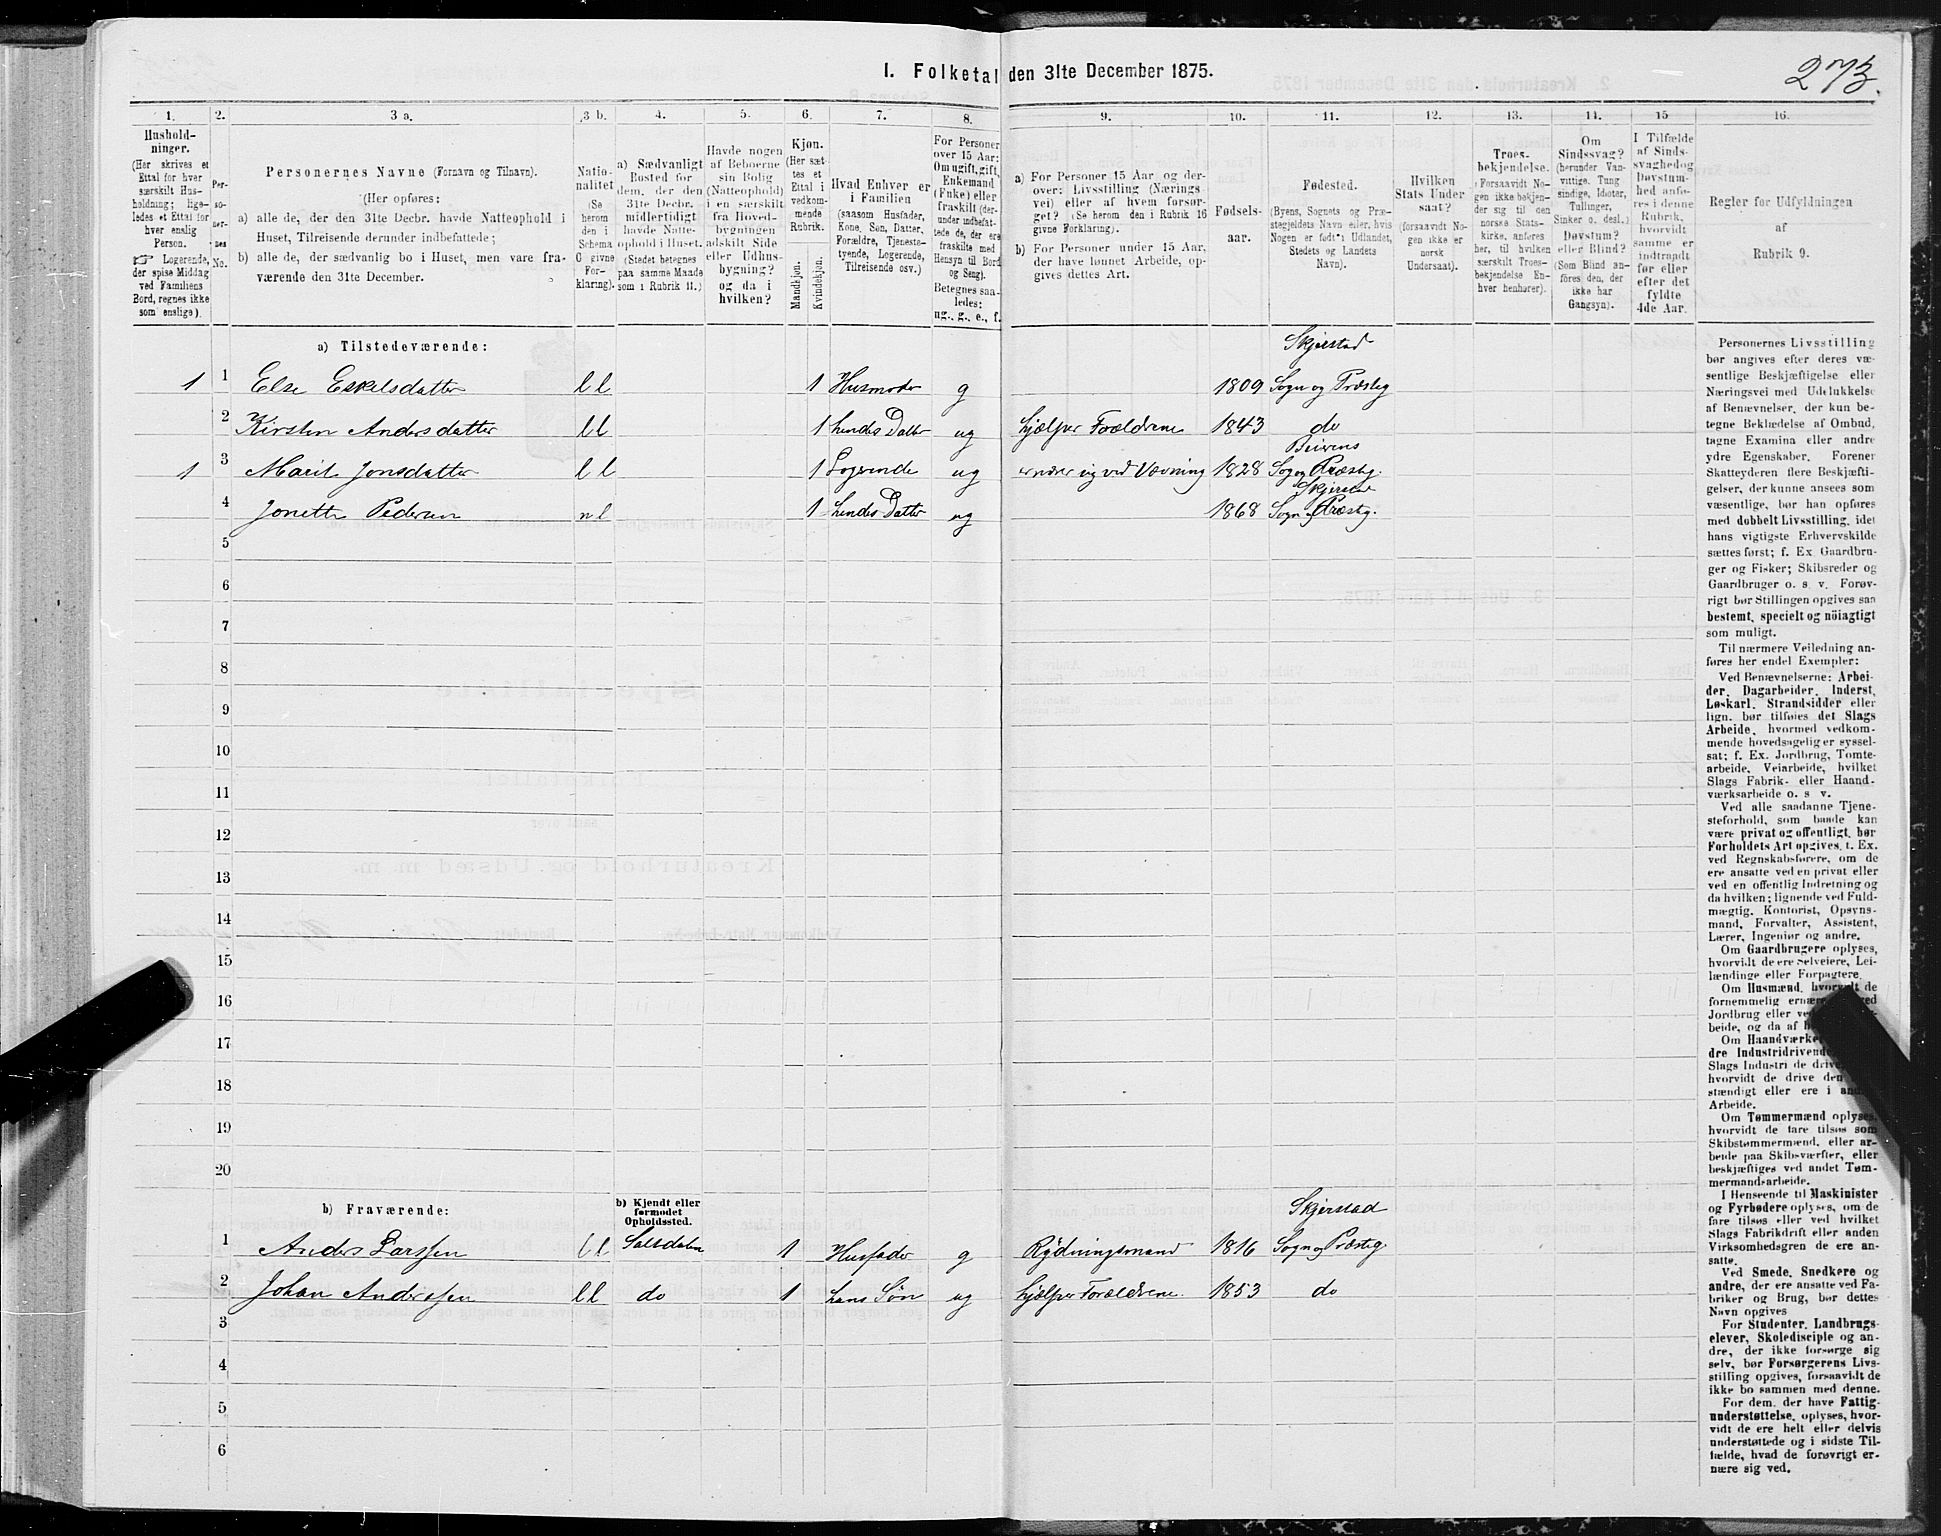 I. Folketal den 31te December 1875.
273.
1. 2. 3 a. 3 b. 4. 5. 6. 7. 8. 9. 10. 11. 12. 13. 14. 15 16.
Hushold-
ninger.
(Her skrives et
Ettal for hver
særskilt Hus-
holdning; lige-
ledes et Ettal for
hver enslig
Person.
☞ Logerende,
der spise Middag
ved Familiens
Bord, regnes ikke
som enslige).
Per-
so-
ner-
nes
No.
Personernes Navne (Fornavn og Tilnavn).
(Her opføres:
a) alle de, der den 31te Decbr. havde Natteophold i
Huset, Tilreisende derunder indbefattede;
b) alle de, der sædvanlig bo i Huset, men vare fra-
værende den 31te December.
Natio-
nalitet
(Se
herom
den i
Schema
C givne
For-
klaring).
a) Sædvanligt
Bosted for
dem, der den
31te Decbr.
midlertidigt
havde Natte-
ophold i Huset.
(Stedet betegnes
paa samme Maade
som i Rubrik 11.)
Havde nogen
af Beboerne
sin Bolig
(Natteophold)
i en særskilt
fra Hoved-
bygningen
adskilt Side
eller Udhus-
bygning?
og da i
hvilken?
Kjøn.
(Her sæt-
tes et
Ettal i
vedkom-
mende
Rubrik.
Mandkjøn.
Kvindekjøn.
Hvad Enhver er
i Familien
(saasom Husfader,
Kone, Søn, Datter,
Forældre, Tjeneste-
tyende, Logerende,
Tilreisende osv.)
For Personer
over 15 Aar:
Om ugift, gift,
Enkemand
(Enke) eller
fraskilt (der-
under indbefat-
tede de, der ere
fraskilte med
Hensyn til Bord
og Seng).
Betegnes saa-
ledes:
ug., g., e., f.
a) For Personer 15 Aar og der-
over: Livsstilling (Nærings-
vei) eller af hvem forsør-
get? (Se herom den i Rubrik 16
givne Forklaring).
b) For Personer under 15 Aar,
der have lønnet Arbeide, op-
gives dettes Art.
Fødsels-
aar.
Fødested.
(Byens, Sognets og Præ-
stegjeldets Navn eller, hvis
Nogen er født i Udlandet,
Stedets og Landets
Navn).
Hvilken
Stats Under
saat?
(forsaavidt No-
gen ikke er
norsk
Undersaat).
Troes-
bekjendelse.
(Forsaavidt No-
gen ikke bekjen-
der sig til den
norske Stats-
kirke, anføres
her, til hvilken
særskilt Troes-
bekjendelse En-
hver henhører).
Om
Sindssvag?
(herunder Van-
vittige, Tung
sindige, Idioter,
Tullinger,
Sinker o. desl.)
Døvstum?
eller Blind?
(Som Blind an-
føres den, der
ikke har
Gangsyn).
I Tilfælde
af Sinds-
svaghed og
Døvstum-
hed anfø-
res i denne
Rubrik,
hvorvidt
samme er
indtraadt
før eller
efter det
fyldte
4de Aar.
Regler for Udfyldningen
af
Rubrik 9.
a) Tilstedeværende:
Skjerstad
1 1 Else Eskelsdatter l l 1 Husmoder g 1809 Sogn og Præsteg
2 Kirsten Andersdatter l l 1 hendes Datter ug hjelper Forældrene 1843 do
Beierens
1 3 Marit Jonsdatter l l 1 Logerende ug ernærer sig ved Vævning 1828 Sogn og Præsteg.
Skjerstad
4 Jonette Pedersen n l 1 hendes Datter ug 1868 Sogn og Præsteg.
5
6
7
8
9
10
11
12
13
14
15
16
17
18
19
20
b) Fraværende:
b) Kjendt eller
formodet
Opholdssted.
Skjerstad
1 Anders Larssen l l Saltdalen 1 Husfader g Rydningsmand 1816 Sogn og Præsteg.
2 Johan Anderssen l l do 1 hans Søn ug hjelper Forældrene. 1853 do
3
4
5
6
Personernes Livsstilling
bør angives efter deres væ-
sentlige Beskjæftigelse eller
Næringsvei med Udelukkelse
af Benævnelser, der kun be-
tegne Beklædelse af Ombud,
tagne Examina eller andre
ydre Egenskaber. Forener
Skatteyderen flere Beskjæfti-
gelser, der kunne ansees som
væsentlige, bør han opføres
med dobbelt Livsstilling, idet
hans vigtigste Erhvervskilde
sættes først; f. Ex Gaardbru-
ger og Fisker; Skibsreder og
Gaardbruger o. s. v. Forøv-
rigt bør Stillingen opgives saa
bestemt, specielt og nöiagtigt
som muligt.
Til nærmere Veiledning an-
føres her endel Exempler:
Ved Benævnelserne: Arbei-
der, Dagarbeider, Inderst,
Løskarl, Strandsidder eller
lign. bør tilføies det Slags
Arbeide, hvormed vedkom-
mende hovedsagelig er syssel-
sat; f. Ex. Jordbrug, Tomte-
arbeide, Veiarbeide, hvilket
Slags Fabrik- eller Haand-
værksarbeide o. s v.
Ved alle saadanne Tjene-
steforhold, som baade kan
være privat og offentligt, bør
Forholdets Art opgives, t. Ex.
ved Regnskabsførere, om de
ere ansatte ved en privat eller
ved en offentlig Indretning og
da hvilken; lignende ved Fuld-
mægtig, Kontorist, Opsyns-
mand, Forvalter, Assistent,
Lærer, Ingeniør og andre.
Om Gaardbrugere oplyses,
hvorvidt de ere Selveiere, Lei-
lændinge eller Forpagtere.
Om Husmænd, hvorvidt de
fornemmelig ernære
Jordbrug eller
beide, og da af
Om Haandværke
dre Industridrivende
Slags Industri de drive
hvorvidt de drive den
stændigt eller ere i
Arbeide.
Om Tømmermænd oplyses,
hvorvidt de fare tilsøs som
Skibstømmermænd, eller ar-
beide paa Skibsværfter, eller
beskjæftiges ved andet Tøm-
mermandsarbeide.
I Henseende til Maskinister
og Fyrbødere oplyses, om de
fare tilsøs eller ved hvilket
Slags Fabrikdrift eller anden
Virksomhedsgren de ere an-
satte.
Ved Smede, Snedkere og
andre, der ere ansatte ved Fa-
briker og Brug, bør dettes
Navn opgives
For Studenter, Landbrugs-
elever, Skoledisciple og an-
dre, der ikke forsørge sig
selv, bør Forsørgerens Livs-
stilling opgives, forsaavidt de
ikke bo sammen med denne.
For dem, der have Fattig-
understøttelse, oplyses, hvor-
vidt de ere helt eller delvis
understøttede og i sidste Til-
fælde, hvad de forøvrigt er-
nære sig ved.